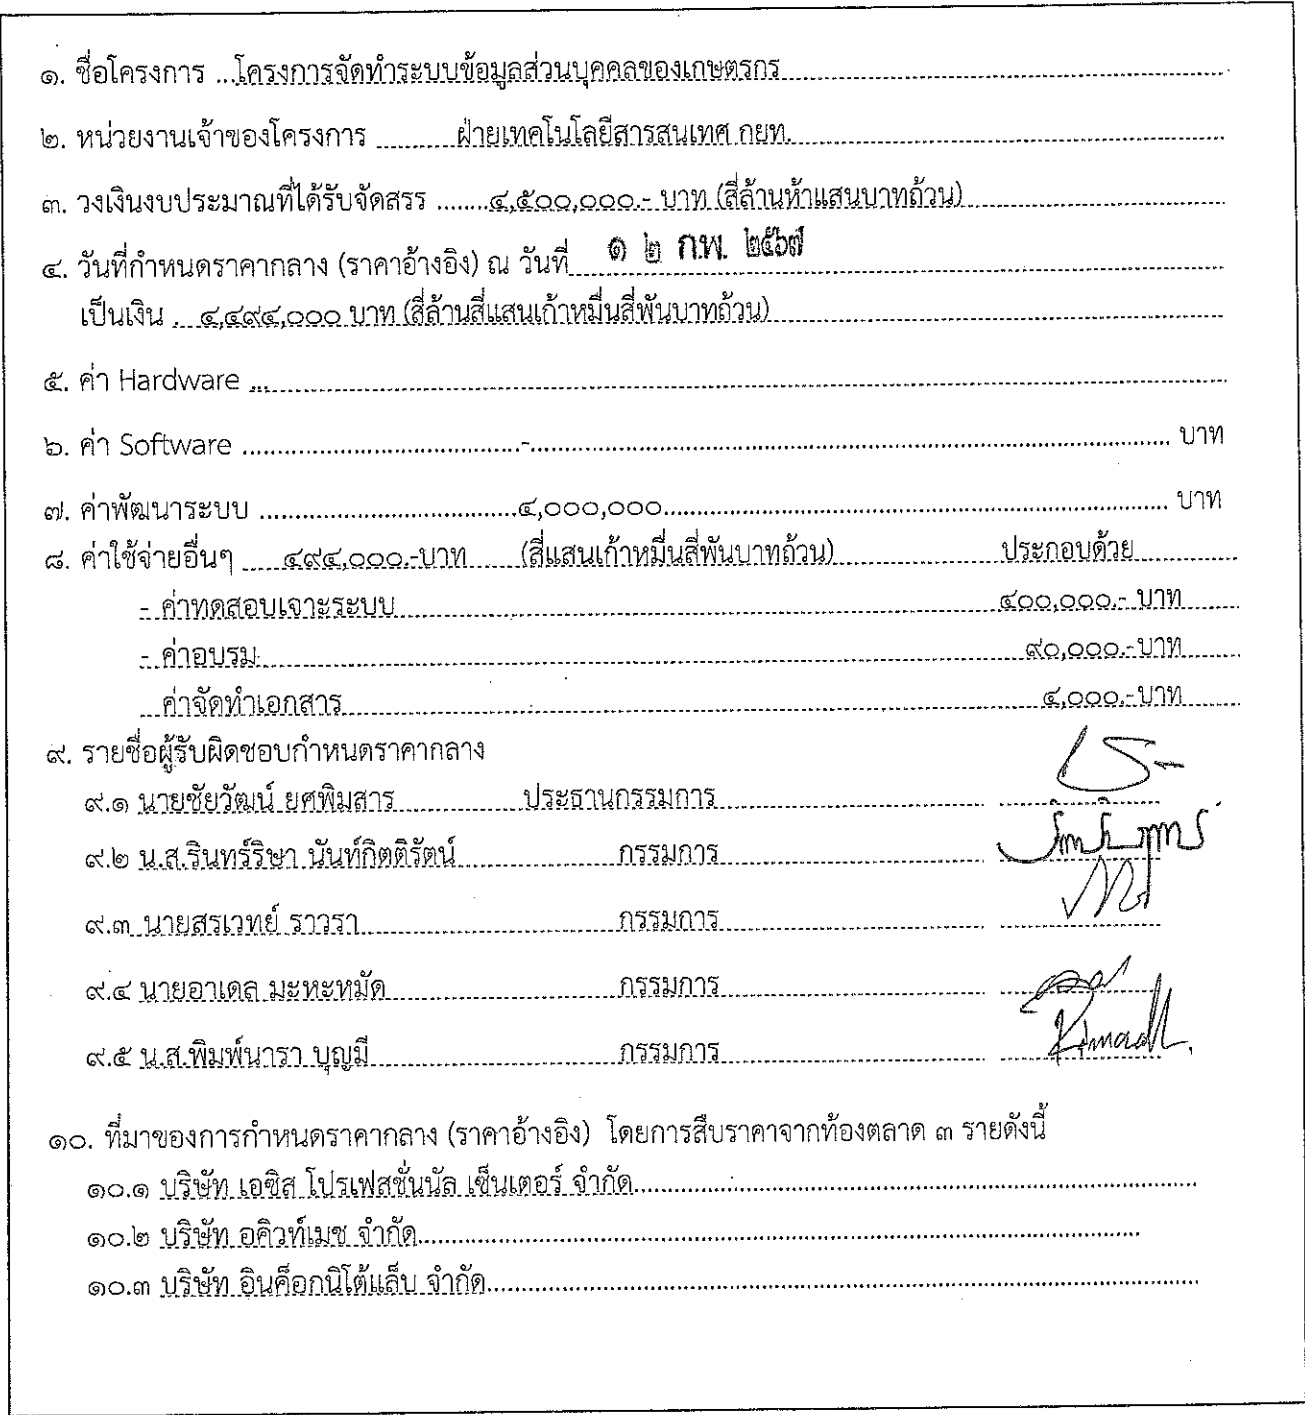 ๑. ชื่อโครงการ ...โครงการจัดทำระบบข้อมูลส่วนบุคคลของเกษตรกร
๒. หน่วยงานเจ้าของโครงการ ฝ่ายเทคโนโลยีสารสนเทศ กยท.
๓. วงเงินงบประมาณที่ได้รับจัดสรร ๔,๕๐๐,๐๐๐.- บาท (สี่ล้านห้าแสนบาทถ้วน)
๔. วันที่กำหนดราคากลาง (ราคาอ้างอิง) ณ วันที่ ๑ ๒ ก.พ. ๒๕๖๗
เป็นเงิน ๔,๔๙๔,๐๐๐ บาท (สี่ล้านสี่แสนเก้าหมื่นสี่พันบาทถ้วน)
๕. ค่า Hardware ...
๖. ค่า Software - บาท
๗. ค่าพัฒนาระบบ ๔,๐๐๐,๐๐๐ บาท
๘. ค่าใช้จ่ายอื่นๆ ๔๙๔,๐๐๐.-บาท (สี่แสนเก้าหมื่นสี่พันบาทถ้วน) ประกอบด้วย
- ค่าทดสอบเจาะระบบ ๔๐๐,๐๐๐.- บาท
- ค่าอบรม ๙๐,๐๐๐.-บาท
ค่าจัดทำเอกสาร ๔,๐๐๐.-บาท
๙. รายชื่อผู้รับผิดชอบกำหนดราคากลาง
๙.๑ นายชัยวัฒน์ ยศพิมสาร ประธานกรรมการ
๙.๒ น.ส.รินทร์ริษา นันท์กิตติรัตน์ กรรมการ
๙.๓ นายสรเวทย์ ราวรา กรรมการ
๙.๔ นายอาเดล มะหะหมัด กรรมการ
๙.๕ น.ส.พิมพ์นารา บุญมี กรรมการ
๑๐. ที่มาของการกำหนดราคากลาง (ราคาอ้างอิง) โดยการสืบราคาจากท้องตลาด ๓ รายดังนี้
๑๐.๑ บริษัท เอซิส โปรเฟสชั่นนัล เซ็นเตอร์ จำกัด
๑๐.๒ บริษัท อคิวท์เมช จำกัด
๑๐.๓ บริษัท อินค็อกนิโต้แล็บ จำกัด